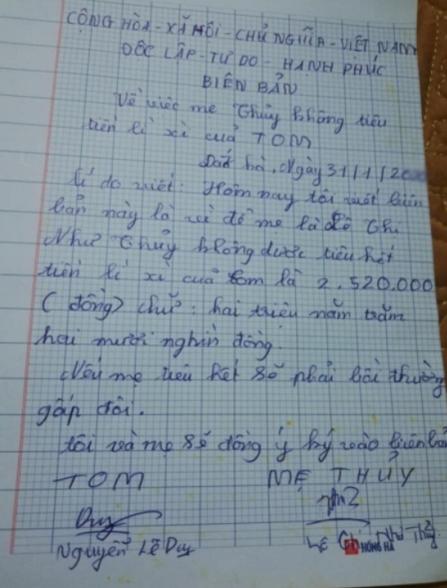 CỘNG HÒA - XÃ HÔI - CHỦ NGHĨA - VIỆT NAM
ĐỘC LẬP - TỰ DO - HẠNH PHÚC
BIÊN BẢN
Về việc mẹ Thủy không tiêu
tiền lì xì của TOM
Đăk hà, Ngày 31/1/20
lí do viết: Hôm nay tôi viết biên
bản này là vì để mẹ là Lê Thị
Như Thủy không được tiêu hết
tiền lì xì của tom là 2.520.000
(đồng) chữ: hai triệu năm trăm
hai mươi nghìn đồng.
Nếu mẹ tiêu hết sẽ phải bồi thường
gấp đôi.
tôi và mẹ sẽ đồng ý ký vào biên bản
TOM MẸ THỦY
Duy
Nguyễn Lê Duy Lê Như Thủy
HỒNG HÀ